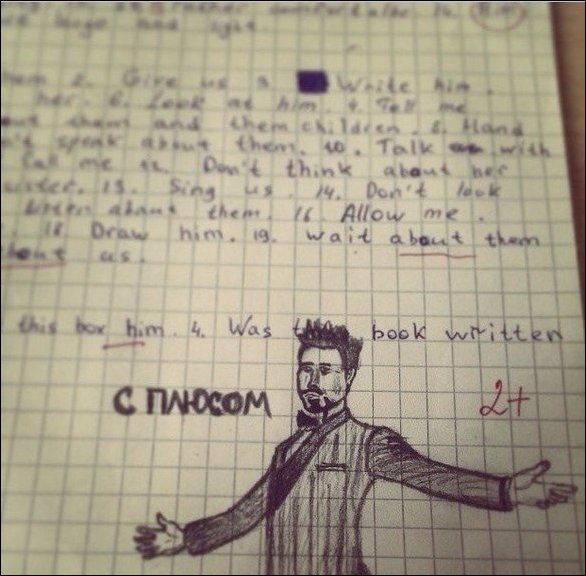 huge and
2. Give us 3. Write him.
her. 6. Look at him. 7. Tell me
them and them children. 8. Hand
n't speak about them. 10. Talk with
Call me 12. Don't think about her
sister. 13. Sing us. 14. Don't look
listen about them. 16. Allow me.
18. Draw him. 19. wait about them
about us.
this box him. 4. Was book written
С ПЛЮСОМ
2+